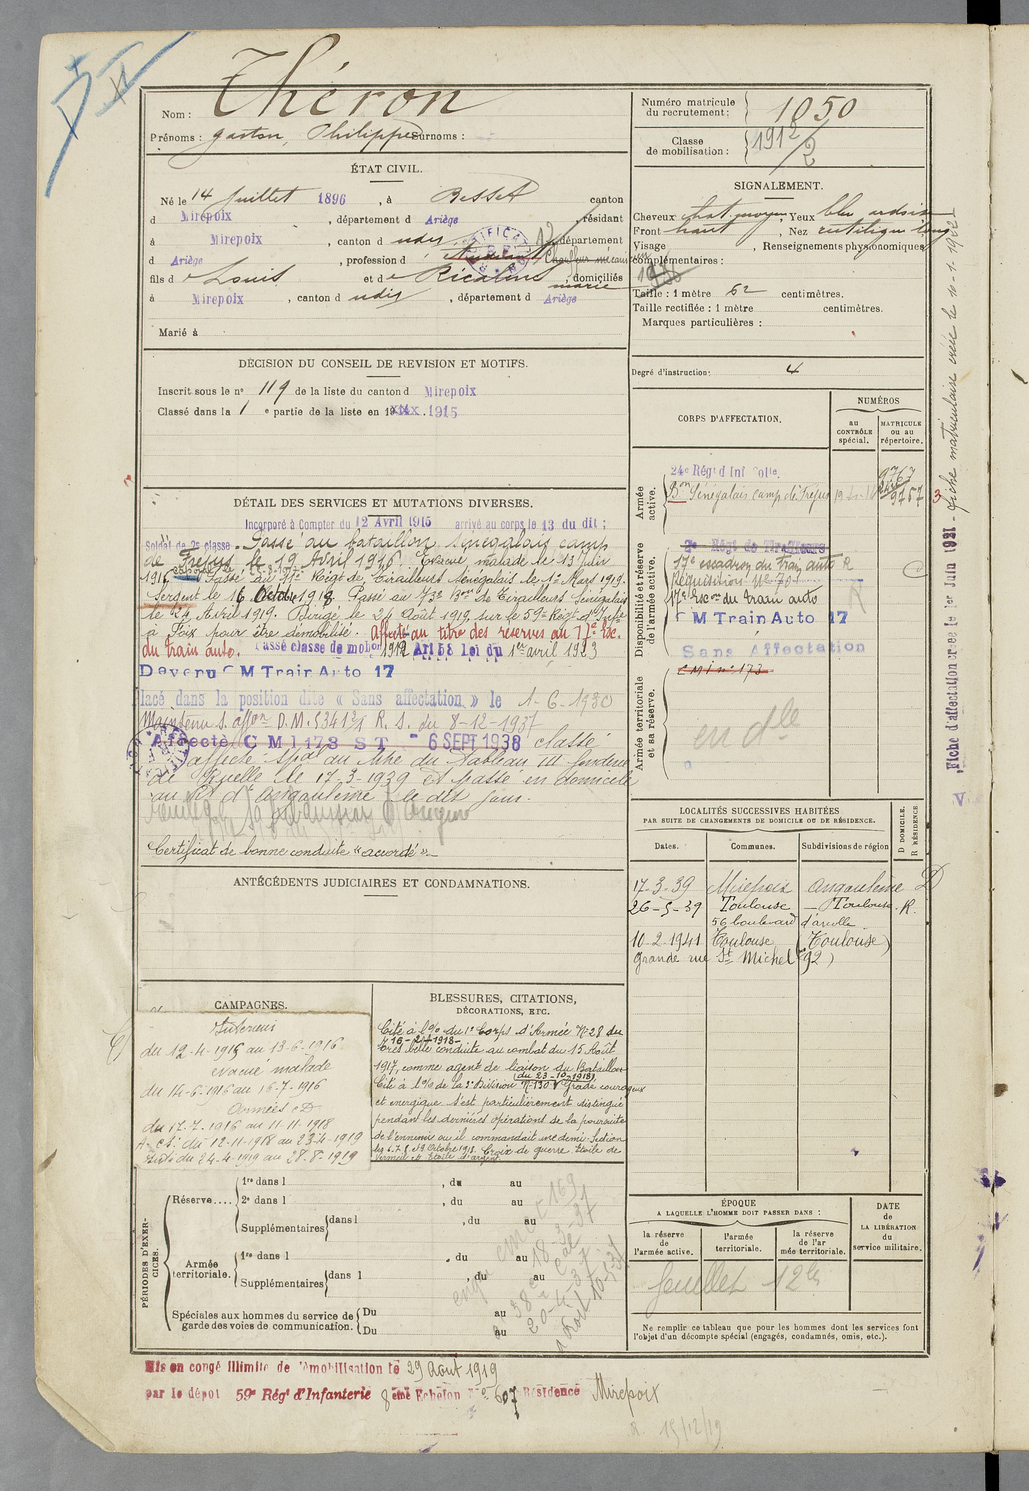 Théron
Nom :
Prénoms : Gaston, Philippe Surnoms :
Numéro matricule du recrutement : 1050
Classe de mobilisation : 1912/2
ÉTAT CIVIL.
Né le 14 Juillet 1896, à Besset canton
d Mirepoix, département d Ariège, résidant
à Mirepoix, canton d udis, département
d Ariège, profession d Chauffeur mécanicien
fils de Louis et de Ricalens domiciliés
à Mirepoix, canton d udis, département d Ariège
Marié à
SIGNALEMENT.
Cheveux chat. moyen Yeux bleu
Front haut, Nez rectiligne long
Visage , Renseignements physionomiques
complémentaires :
Taille : 1 mètre 62 centimètres.
Taille rectifiée : 1 mètre centimètres.
Marques particulières :
Degré d'instruction : 4
DÉCISION DU CONSEIL DE REVISION ET MOTIFS.
Inscrit sous le n° 119 de la liste du canton d Mirepoix
Classé dans la 1 e partie de la liste en 1915
DÉTAIL DES SERVICES ET MUTATIONS DIVERSES.
Incorporé à Compter du 12 Avril 1915 arrivé au corps le 13 du dit ;
Soldat de 2e classe. Passé au bataillon Sénégalais camp
de Fréjus le 19 Avril 1916. Evacué, malade le 13 Juin
1916. Passé au 11e Régt de Tirailleurs Sénégalais le 1er Mars 1919.
Sergent le 16 Octobre 1918. Passé au 73e Bon de Tirailleurs Sénégalais
le 24 Avril 1919. Dirigé le 26 Août 1919 sur le 59e Régt d'Infie
à Foix pour être démobilisé. Affecté au titre des réserves au 17e Esc.
du train auto. Passé classe de mobon 1912 Art 58 Loi du 1er avril 1923
Devenu CM Train Auto 17
Placé dans la position dite « Sans affectation » le 1-6-1930
Maintenu S. affon D.M. 5341 2/1 R. S. du 8-12-1937
Affecté CMI 173 ST - 6 SEPT 1938 classé
affecté spal au titre du Tableau III fonderie
de Ruelle le 17.3-1939 et passé en domicile
au Rt d'Angoulême le dit jour.
Certificat de bonne conduite "accordé"
CORPS D'AFFECTATION.
NUMÉROS
au CONTRÔLE spécial.
MATRICULE ou au répertoire.
Armée active.
24e Régt d'Inf Colle.
Bon Sénégalais camp de Fréjus
9767
9757
Disponibilité et réserve de l'armée active.
Régt de Tirailleurs
17e escadron du train auto R
Réquisition
17e Escon du train auto
CM Train Auto 17
Sans Affectation
Armée territoriale et sa réserve.
CMI n° 173
en dle
Fiche d'affectation créée le 1er Juin 1921 - fiche matriculaire créée le
ANTÉCÉDENTS JUDICIAIRES ET CONDAMNATIONS.
LOCALITÉS SUCCESSIVES HABITÉES
PAR SUITE DE CHANGEMENTS DE DOMICILE OU DE RÉSIDENCE.
Dates. Communes. Subdivisions de région D DOMICILE. R RÉSIDENCE.
17-3-39 Mirepoix Angoulême D
26-5-39 Toulouse — Toulouse. R.
56 boulevard d'Arcole
10-2-1941 Toulouse (Toulouse)
Grande rue St Michel (92)
CAMPAGNES.
Intérieur
du 12-4-1915 au 13-6-1916
évacué malade
du 14-6-1916 au 16-7-1916
Armées CD
du 17-7-1916 au 11-11-1918
du 12-11-1918 au 23-4-1919
du 24-4-1919 au 28-8-1919
BLESSURES, CITATIONS,
DÉCORATIONS, ETC.
Cité à l'O/ du 1er Corps d'Armée N° 28 du
16-2-1918-
Très belle conduite au combat du 15 Août
1917, comme agent de liaison du Bataillon
(du 23-10-1918)
Cité à l'O/ de la 2e Division N° 130 Gradé courageux
et énergique s'est particulièrement distingué
pendant les dernières opérations de la poursuite
de l'ennemi où il commandait une demi-section
les 6.7.8. et 9 Octobre 1918. Croix de guerre Etoile de
vermeil et Etoile d'argent.
PÉRIODES D'EXERCICES.
Réserve....
1re dans l , du au
2e dans l , du au
Supplémentaires dans l , du au
Armée territoriale.
1re dans l , du au
Supplémentaires dans l , du au
Spéciales aux hommes du service de garde des voies de communication.
Du au
Du au
ÉPOQUE
A LAQUELLE L'HOMME DOIT PASSER DANS :
la réserve de l'armée active.
l'armée territoriale.
la réserve de l'armée territoriale.
DATE de LA LIBÉRATION du service militaire.
feuillet
Ne remplir ce tableau que pour les hommes dont les services font
l'objet d'un décompte spécial (engagés, condamnés, omis, etc.).
Mis en congé illimité de démobilisation le 29 Août 1919
par le dépôt 59e Régt d'Infanterie 8ème Echelon N° 607 Résidence Mirepoix
15/12/19